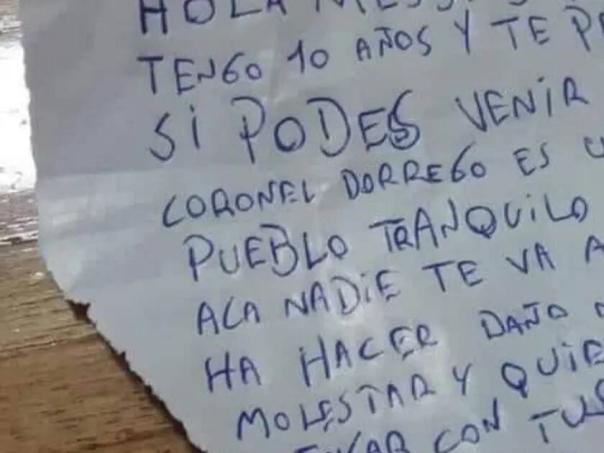 HOLA
TENGO 10 AÑOS Y TE
SI PODES VENIR
CORONEL DORREGO ES
PUEBLO TRANQUILO
ACA NADIE TE VA A
HA HACER DAÑO
MOLESTAR Y
CON